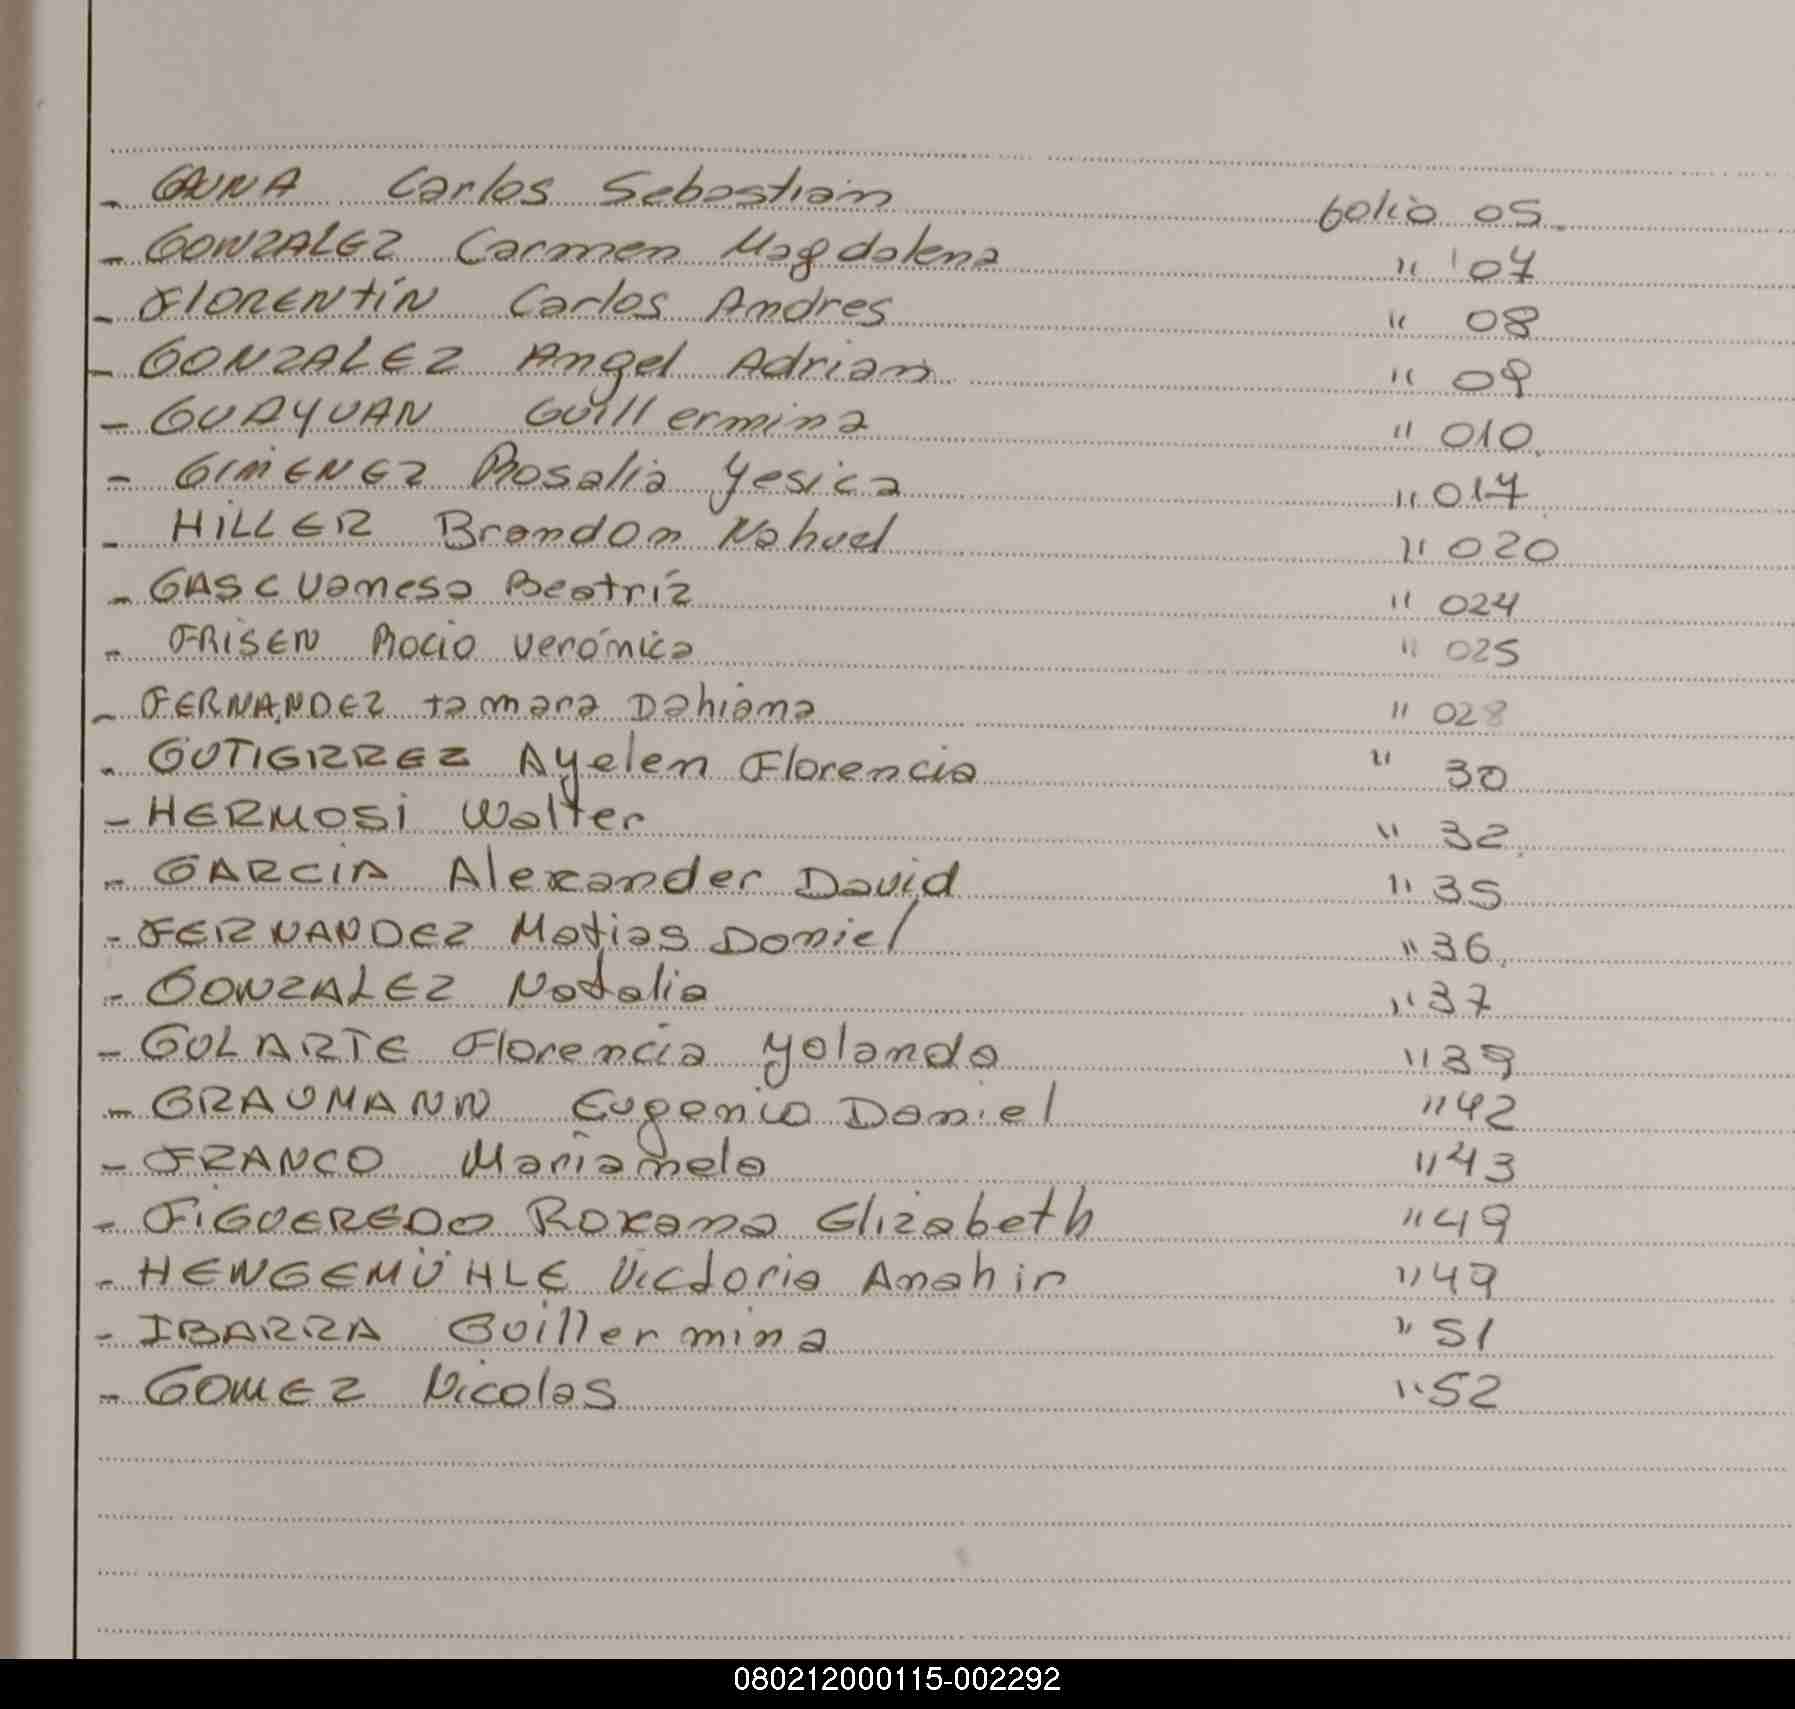 - GAUNA Carlos Sebastián folio 05.
- GONZALEZ Carmen Magdalena " 07
- FLORENTÍN Carlos Andres " 08
- GONZALEZ Angel Adrian " 09
- GUAYUAN Guillermina " 010
- GIMENEZ Rosalia Yesica " 017
- HILLER Brandon Nahuel " 020
- GASC Vanesa Beatríz " 024
- FRISEN Rocio Verónica " 025
- FERNANDEZ tamara Dahiana " 028
- GUTIERREZ Ayelen Florencia " 30
- HERMOSI Walter " 32
- GARCIA Alexander David " 35
- FERNANDEZ Matias Daniel " 36
- GONZALEZ Natalia " 37
- GULARTE Florencia Yolanda " 39
- GRAUMANN Eugenio Daniel " 42
- FRANCO Marianela " 43
- FIGUEREDO Roxana Elizabeth " 49
- HENGEMÜHLE Victoria Anahir " 49
- IBARRA Guillermina " 51
- GOMEZ Nicolas " 52
080212000115-002292